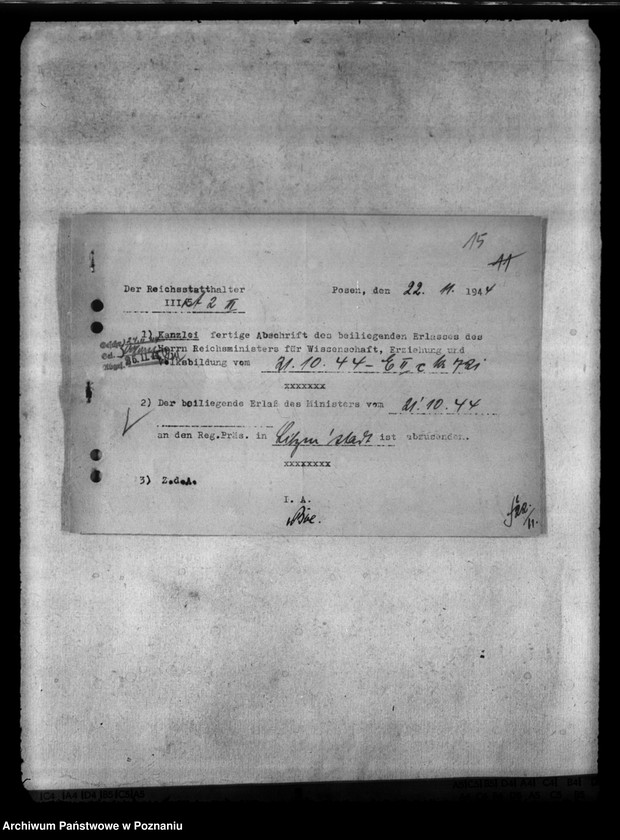 15
11
Der Reichsstatthalter
Posen, den 22. 11. 1944
III 2 II
1) Kanzlei fertige Abschrift des beiliegenden Erlasses des
Herrn Reichsministers für Wissenschaft, Erziehung und
Volksbildung vom 21.10.44 - E II c
xxxxxxx
2) Der beiliegende Erlaß des Ministers vom 21.10.44
an den Reg.Präs. in Litzm'stadt ist abzusenden.
xxxxxxxx
3) Z.d.A.
I. A.
22/11.
Archiwum Państwowe w Poznaniu